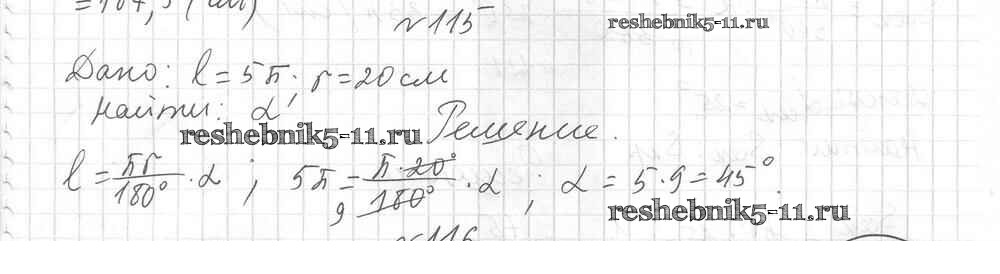 =184,5 (см)
№115
reshebnik5-11.ru
Дано: l = 5π; r = 20 см
Найти: α
reshebnik5-11.ru
Решение.
l = πr/180° · α ; 5π = π · 20°/180° · α ; α = 5 · 9 = 45°.
9
reshebnik5-11.ru
№116